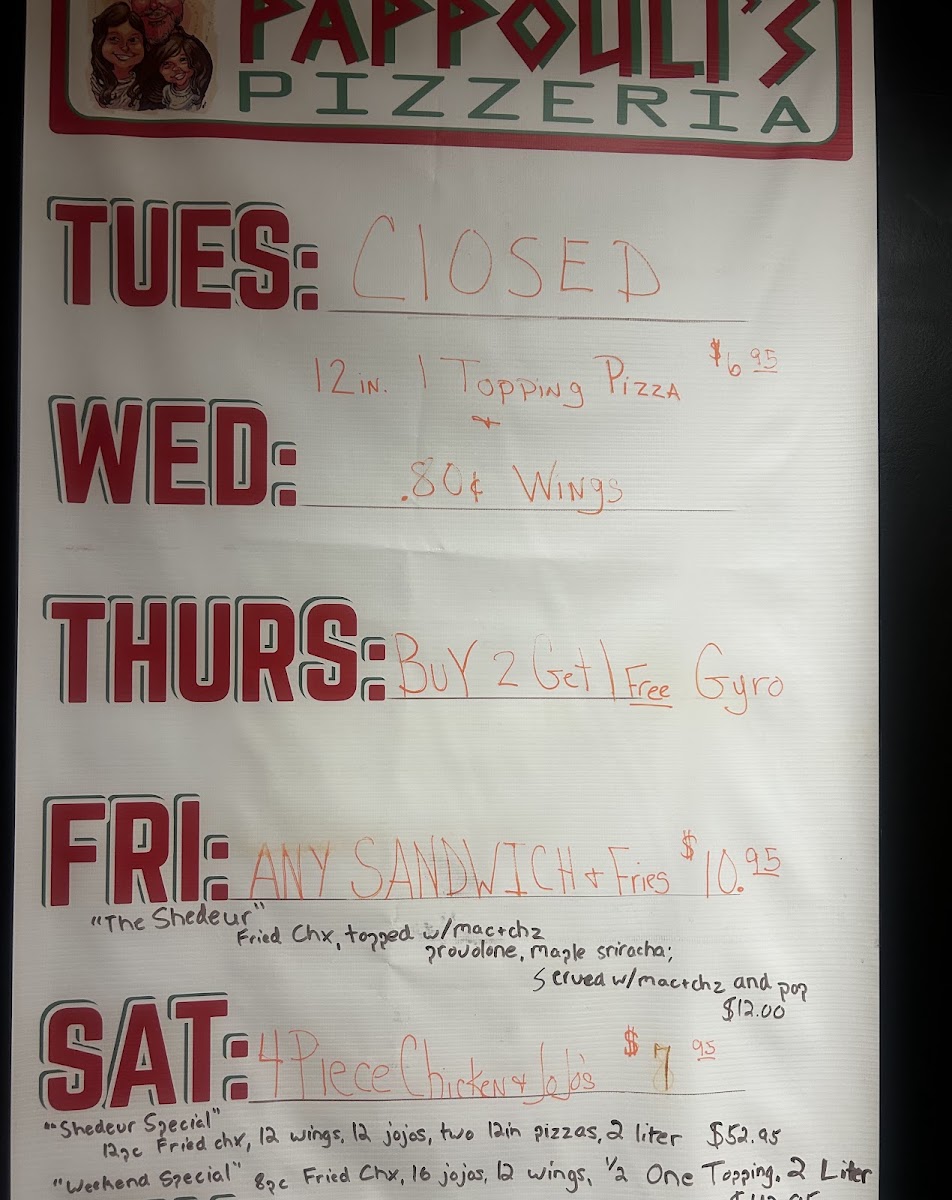 PAPPOULI'S
PIZZERIA
TUES: ClOSED
12 IN. 1 TOPPING PIZZA $6 95
+
WED: .80¢ WINGS
THURS: BUY 2 Get 1 Free Gyro
FRI: ANY SANDWICH + Fries $10.95
"The Shedeur"
Fried Chx, topped w/mac+chz
provolone, maple sriracha;
Served w/mac+chz and pop
$12.00
SAT: 4 Piece Chicken + JoJo's $ 95
"Shedeur Special"
12pc Fried chx, 12 wings, 12 jojos, two 12in pizzas, 2 liter $52.95
"Weekend Special" 8pc Fried Chx, 16 jojos, 12 wings, 1/2 One Topping, 2 Liter